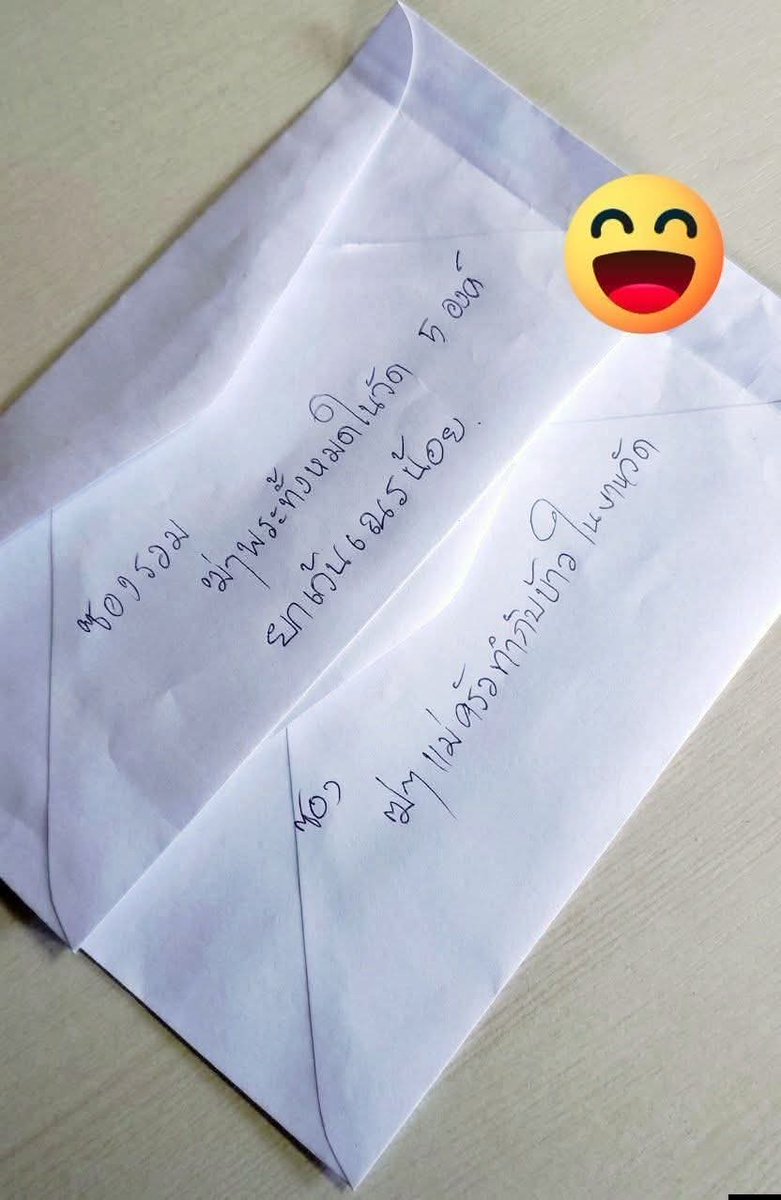 ซองรวม
ฆ่าพระทั้งหมดในวัด 5 องค์
ยกเว้นเณรน้อย.
ซอง
ฆ่าแม่ครัวทำกับข้าวในงานวัด